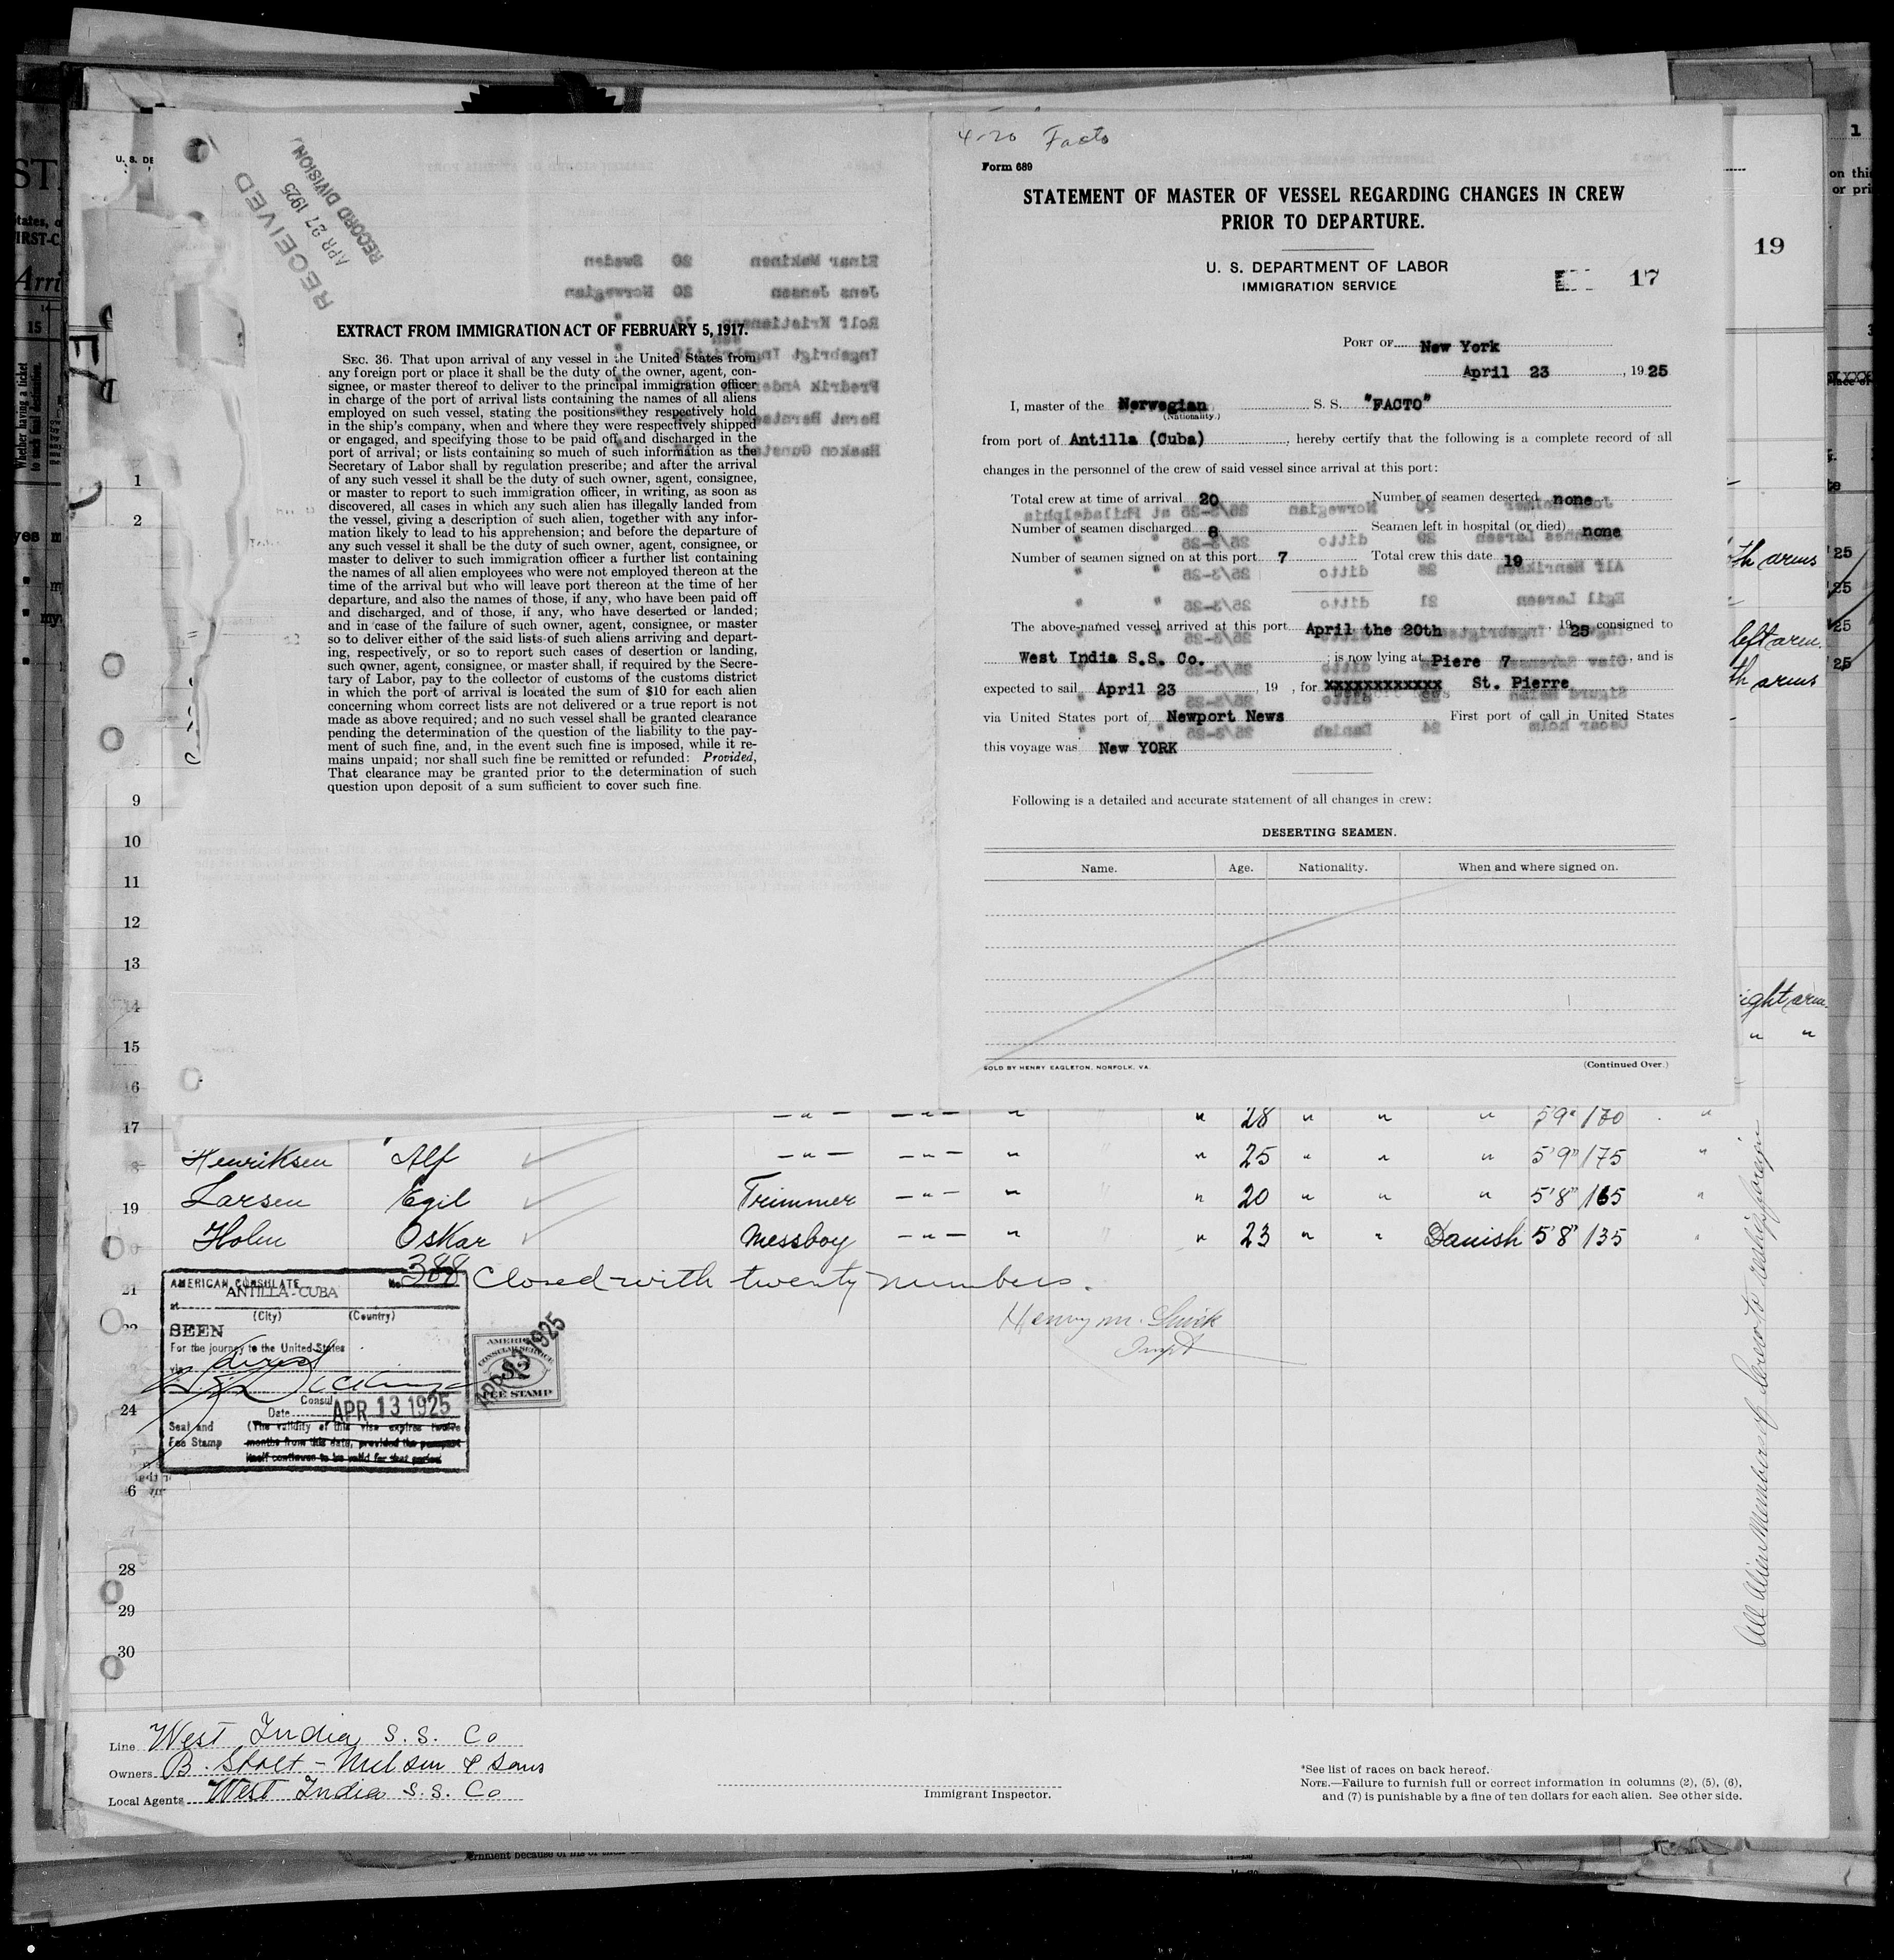 4-20 Facto
Form 689
STATEMENT OF MASTER OF VESSEL REGARDING CHANGES IN CREW
PRIOR TO DEPARTURE.
U. S. DEPARTMENT OF LABOR
IMMIGRATION SERVICE
17
PORT OF New York
April 23, 1925
I, master of the Norwegian S. S. "FACTO"
(Nationality.)
from port of Antilla (Cuba), hereby certify that the following is a complete record of all
changes in the personnel of the crew of said vessel since arrival at this port:
Total crew at time of arrival 20 Number of seamen deserted none
Number of seamen discharged 8 Seamen left in hospital (or died) none
Number of seamen signed on at this port 7 Total crew this date 19
The above-named vessel arrived at this port April the 20th, 1925 consigned to
West India S.S. Co. is now lying at Piere 7, and is
expected to sail April 23, 19 , for xxxxxxxxxxxx St. Pierre
via United States port of Newport News First port of call in United States
this voyage was New YORK
Following is a detailed and accurate statement of all changes in crew:
DESERTING SEAMEN.
Name. Age. Nationality. When and where signed on.
SOLD BY HENRY EAGLETON, NORFOLK, VA. (Continued Over.)
U. S. DE
RECEIVED
APR 27 1925
RECORD DIVISION
EXTRACT FROM IMMIGRATION ACT OF FEBRUARY 5, 1917.
SEC. 36. That upon arrival of any vessel in the United States from
any foreign port or place it shall be the duty of the owner, agent, con-
signee, or master thereof to deliver to the principal immigration officer
in charge of the port of arrival lists containing the names of all aliens
employed on such vessel, stating the positions they respectively hold
in the ship's company, when and where they were respectively shipped
or engaged, and specifying those to be paid off and discharged in the
port of arrival; or lists containing so much of such information as the
Secretary of Labor shall by regulation prescribe; and after the arrival
of any such vessel it shall be the duty of such owner, agent, consignee,
or master to report to such immigration officer, in writing, as soon as
discovered, all cases in which any such alien has illegally landed from
the vessel, giving a description of such alien, together with any infor-
mation likely to lead to his apprehension; and before the departure of
any such vessel it shall be the duty of such owner, agent, consignee, or
master to deliver to such immigration officer a further list containing
the names of all alien employees who were not employed thereon at the
time of the arrival but who will leave port thereon at the time of her
departure, and also the names of those, if any, who have been paid off
and discharged, and of those, if any, who have deserted or landed;
and in case of the failure of such owner, agent, consignee, or master
so to deliver either of the said lists of such aliens arriving and depart-
ing, respectively, or so to report such cases of desertion or landing,
such owner, agent, consignee, or master shall, if required by the Secre-
tary of Labor, pay to the collector of customs of the customs district
in which the port of arrival is located the sum of $10 for each alien
concerning whom correct lists are not delivered or a true report is not
made as above required; and no such vessel shall be granted clearance
pending the determination of the question of the liability to the pay-
ment of such fine, and, in the event such fine is imposed, while it re-
mains unpaid; nor shall such fine be remitted or refunded: Provided,
That clearance may be granted prior to the determination of such
question upon deposit of a sum sufficient to cover such fine.
1
2
9
10
11
12
13
14
15
16
19
th arms
left arm.
th arms
ight arm
" "
17 —"— —"— " " 28 " " " 5'9" 170 "
Henriksen Alf —"— —"— " " 25 " " " 5'9" 175 "
19 Larsen Egil Trimmer —"— " " 20 " " " 5'8" 165 "
Holm Oskar Messboy —"— " " 23 " " Danish 5'8" 135 "
21 Closed with twenty numbers.
Henry M.
Inspt
AMERICAN CONSULATE No. 388
at ANTILLA-CUBA
(City) (Country)
SEEN
For the journey to the United States
via direct
Consul
Date APR 13 1925
Seal and (The validity of this visa expires twelve
Fee Stamp months from this date, provided the passport
itself continues to be valid for that period
AMERICAN
CONSULAR SERVICE
$2
FEE STAMP
APR 13 1925
24
28
29
30
All Alien Members of Crew to reship foreign
Line West India S. S. Co
Owners B. Stolt-Nielsen & Sons
Local Agents West India S. S. Co
Immigrant Inspector.
*See list of races on back hereof.
NOTE.—Failure to furnish full or correct information in columns (2), (5), (6),
and (7) is punishable by a fine of ten dollars for each alien. See other side.